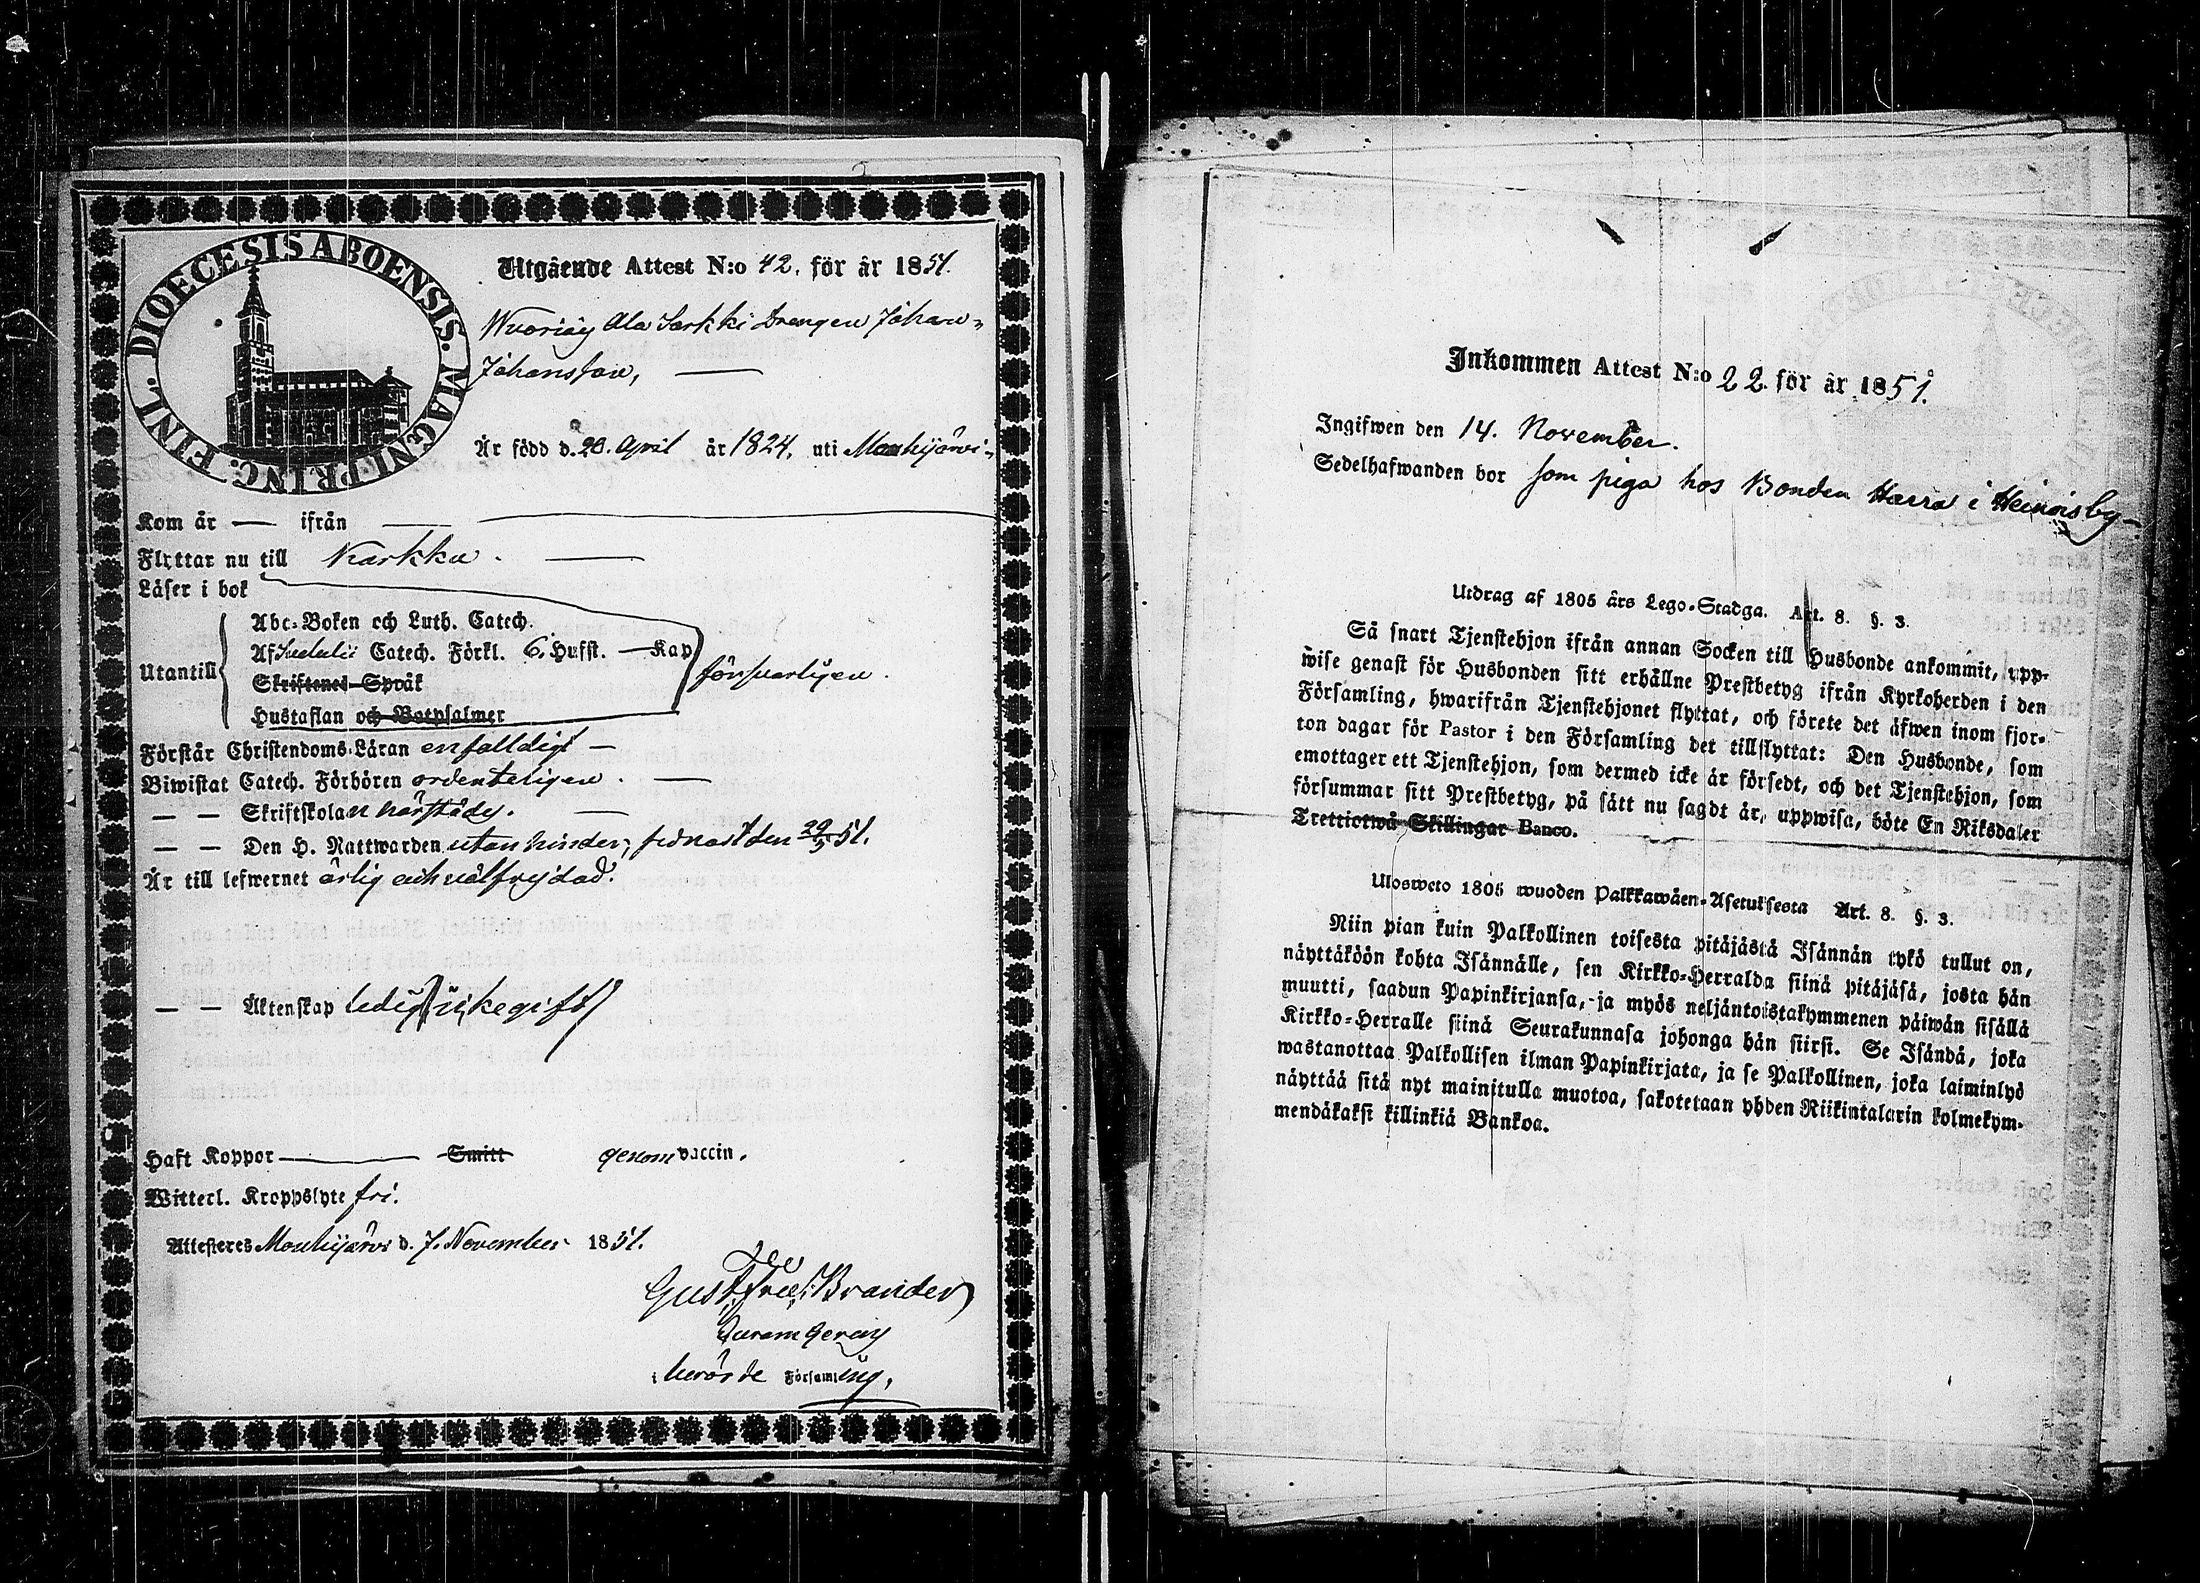 DIOECESIS ABOENSIS. MAGNI PRINC. FINL.
Utgående Attest N:o 42. för år 1851.
Ala Sarkki Drengen Johan
Johansson,
Är född d. 20. April år 1824. uti Mouhijärvi
Kom år — ifrån —
Flyttar nu till Karkku. —
Läser i bok
Utantill
Abc-Boken och Luth. Catech.
Af Catech. Förkl. 6. Hufst. — Kap
Skriftenes Språk
försvarligen.
Hustaflan och Botpsalmer
Förstår Christendoms-Läran enfalldigt —
Biwistat Catech. Förhören ordenteligen. —
— — Skriftskolan härstädes. —
— — Den H. Nattwarden utan hinder, senast den 29/5 51.
Är till lefwernet ärlig och välfrejdad.
— — Äktenskap ledig
Haft Koppor — Smitt genom vaccin.
Witterl. Kroppslyte fri.
Attesteres Mouhijärvi d. 7. November 1851.
Gust. Fred. Brander
i berörde Församling.
Inkommen Attest N:o 22 för år 1851.
Ingifwen den 14. November.
Sedelhafwanden bor som piga hos Bonden Harra i Heinoisby
Utdrag af 1805 års Lego-Stadga. Art. 8. §. 3.
Så snart Tjenstehjon ifrån annan Socken till Husbonde ankommit, upp-
wise genast för Husbonden sitt erhållne Prestbetyg ifrån Kyrkoherden i den
Församling, hwarifrån Tjenstehjonet flyttat, och förete det äfwen inom fjor-
ton dagar för Pastor i den Församling det tillflyttat: Den Husbonde, som
emottager ett Tjenstehjon, som dermed icke är försedt, och det Tjenstehjon, som
försummar sitt Prestbetyg, på sätt nu sagdt är, uppwisa, böte En Riksdaler
Trettiotwå Skillingar Banco.
Ulosweto 1805 wuoden Palkkawäen-Asetuksesta Art. 8. §. 3.
Niin pian kuin Palkollinen toisesta pitäjästä Isännän tykö tullut on,
näyttäköön kohta Isännälle, sen Kirkko-Herralda siinä pitäjäsä, josta hän
muutti, saadun Papinkirjansa, ja myös neljäntoistakymmenen päiwän sisällä
Kirkko-Herralle siinä Seurakunnasa johonga hän siirsi. Se Isändä, joka
wastanottaa Palkollisen ilman Papinkirjata, ja se Palkollinen, joka laiminlyö
näyttää sitä nyt mainitulla muotoa, sakotetaan yhden Riikintalarin kolmekym-
mendäkaksi killinkiä Bankoa.